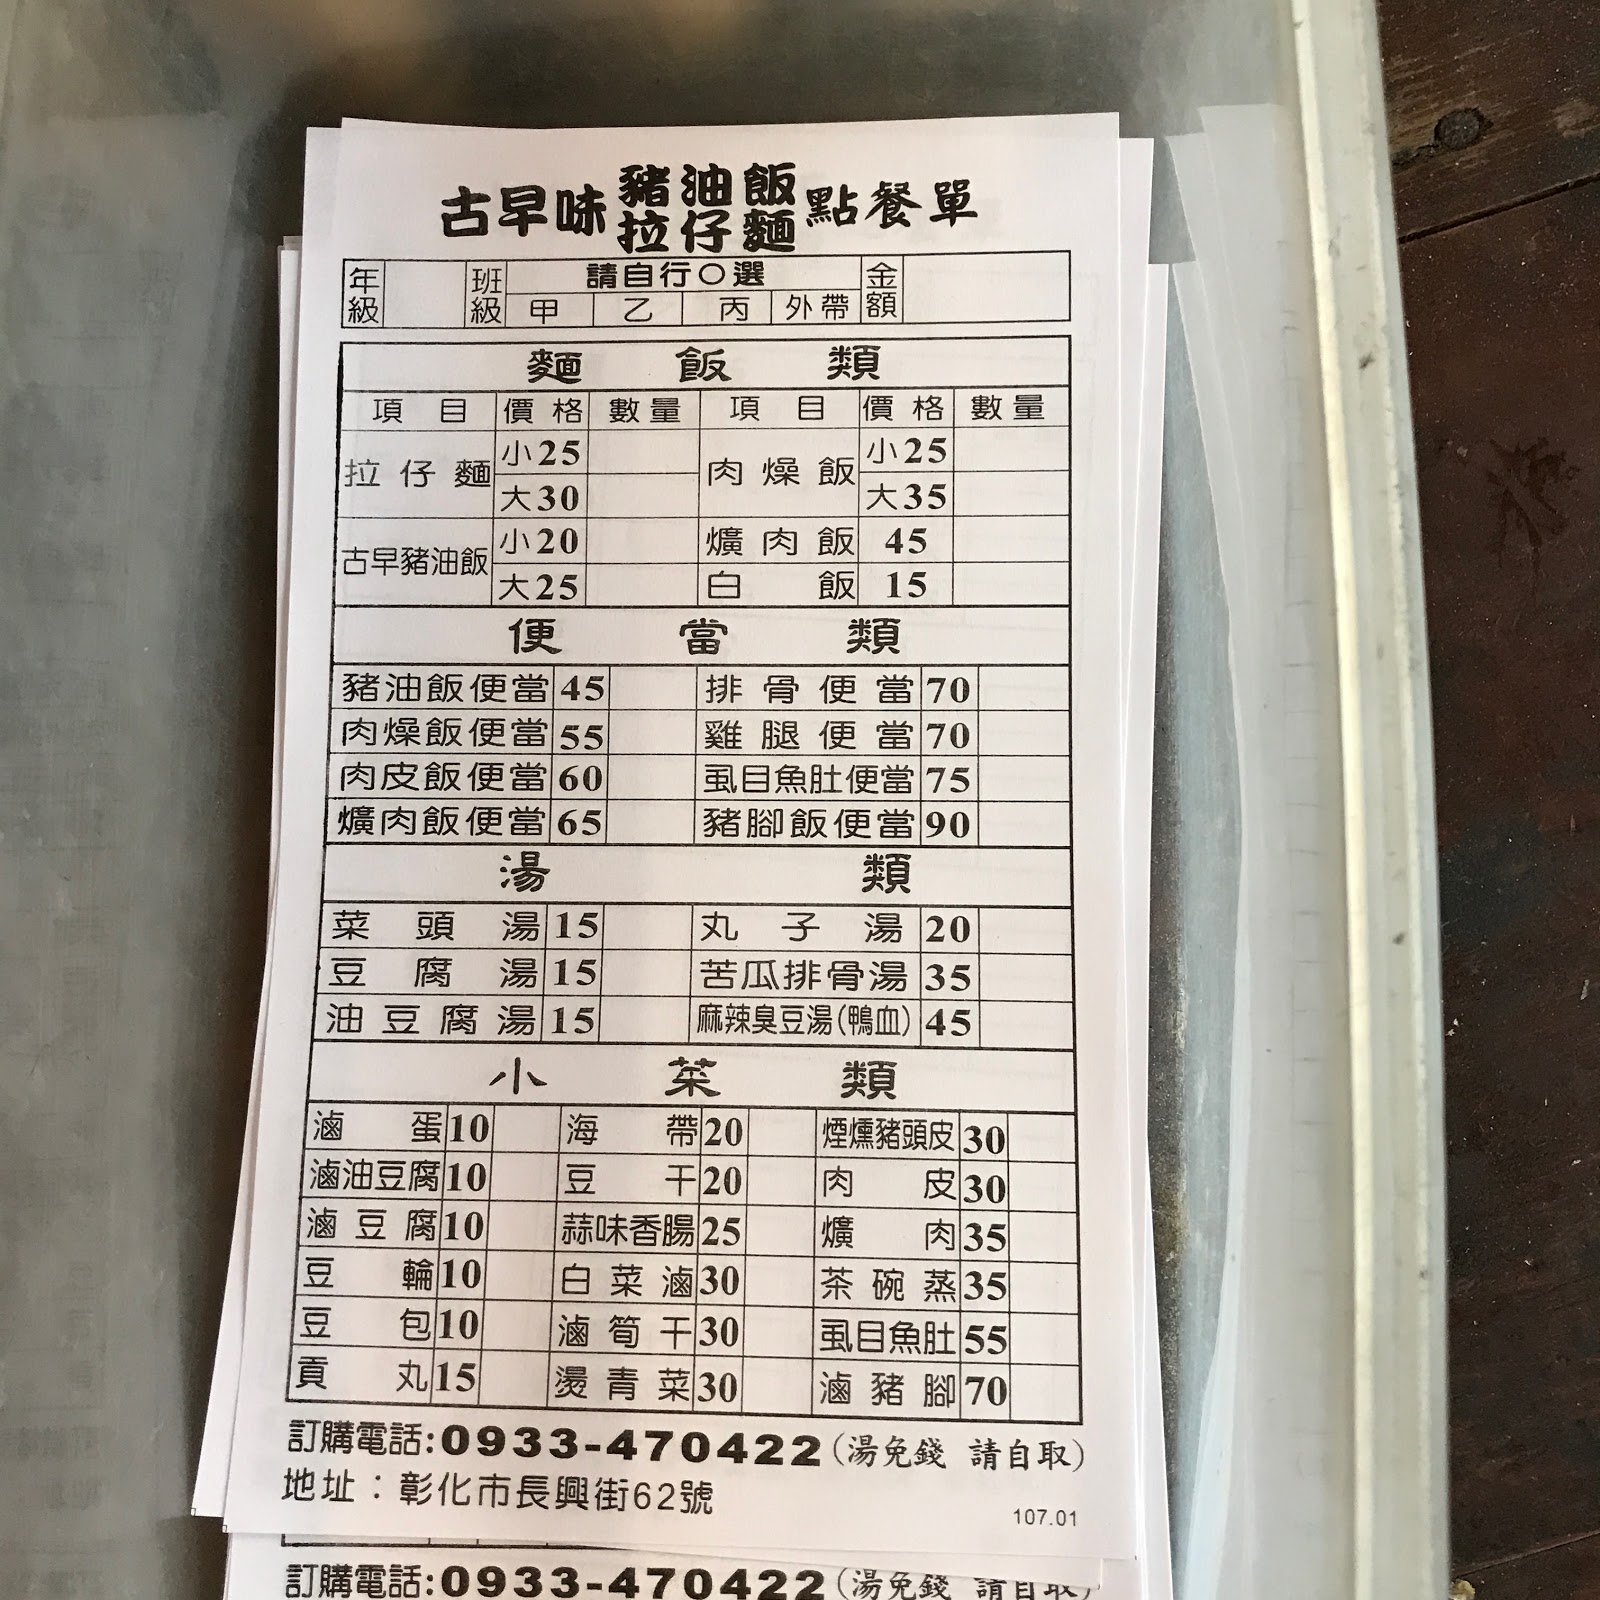 古早味 豬油飯 拉仔麵 點餐單
年級 班級 請自行○選 金額
甲 乙 丙 外帶
麵飯類
項目 價格 數量 項目 價格 數量
拉仔麵 小25 肉燥飯 小25
大30 大35
古早豬油飯 小20 爌肉飯 45
大25 白飯 15
便當類
豬油飯便當 45 排骨便當 70
肉燥飯便當 55 雞腿便當 70
肉皮飯便當 60 虱目魚肚便當 75
爌肉飯便當 65 豬腳飯便當 90
湯類
菜頭湯 15 丸子湯 20
豆腐湯 15 苦瓜排骨湯 35
油豆腐湯 15 麻辣臭豆湯(鴨血) 45
小菜類
滷蛋 10 海帶 20 煙燻豬頭皮 30
滷油豆腐 10 豆干 20 肉皮 30
滷豆腐 10 蒜味香腸 25 爌肉 35
豆輪 10 白菜滷 30 茶碗蒸 35
豆包 10 滷筍干 30 虱目魚肚 55
貢丸 15 燙青菜 30 滷豬腳 70
訂購電話:0933-470422(湯免錢 請自取)
地址：彰化市長興街62號
107.01
訂購電話:0933-470422(湯免錢 請自取)